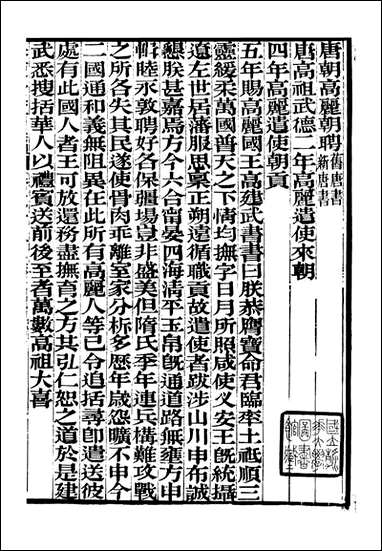 唐朝高麗朝聘舊唐書新唐書
唐高祖武德二年高麗遣使來朝
四年高麗遣使朝貢
五年賜高麗國王高建武書書曰朕恭膺寶命君臨率土祗順三
靈緩柔萬國普天之下情均撫字日月所照咸使乂安王既統攝
遼左世居藩服思稟正朔遠循職貢故遣使者跋涉山川申布誠
懇朕甚嘉焉方今六合甯晏四海清平玉帛既通道路無壅方申
輯睦永敦聘好各保疆場豈非盛美但隋氏季年連兵構難攻戰
之所各失其民遂使骨肉乖離室家分析多歷年歲怨曠不申今
二國通和義無阻異在此所有高麗人等已令追括尋即遣送彼
處有此國人者王可放還務盡撫育之方共弘仁恕之道於是建
武悉搜括華人以禮賓送前後至者萬數高祖大喜